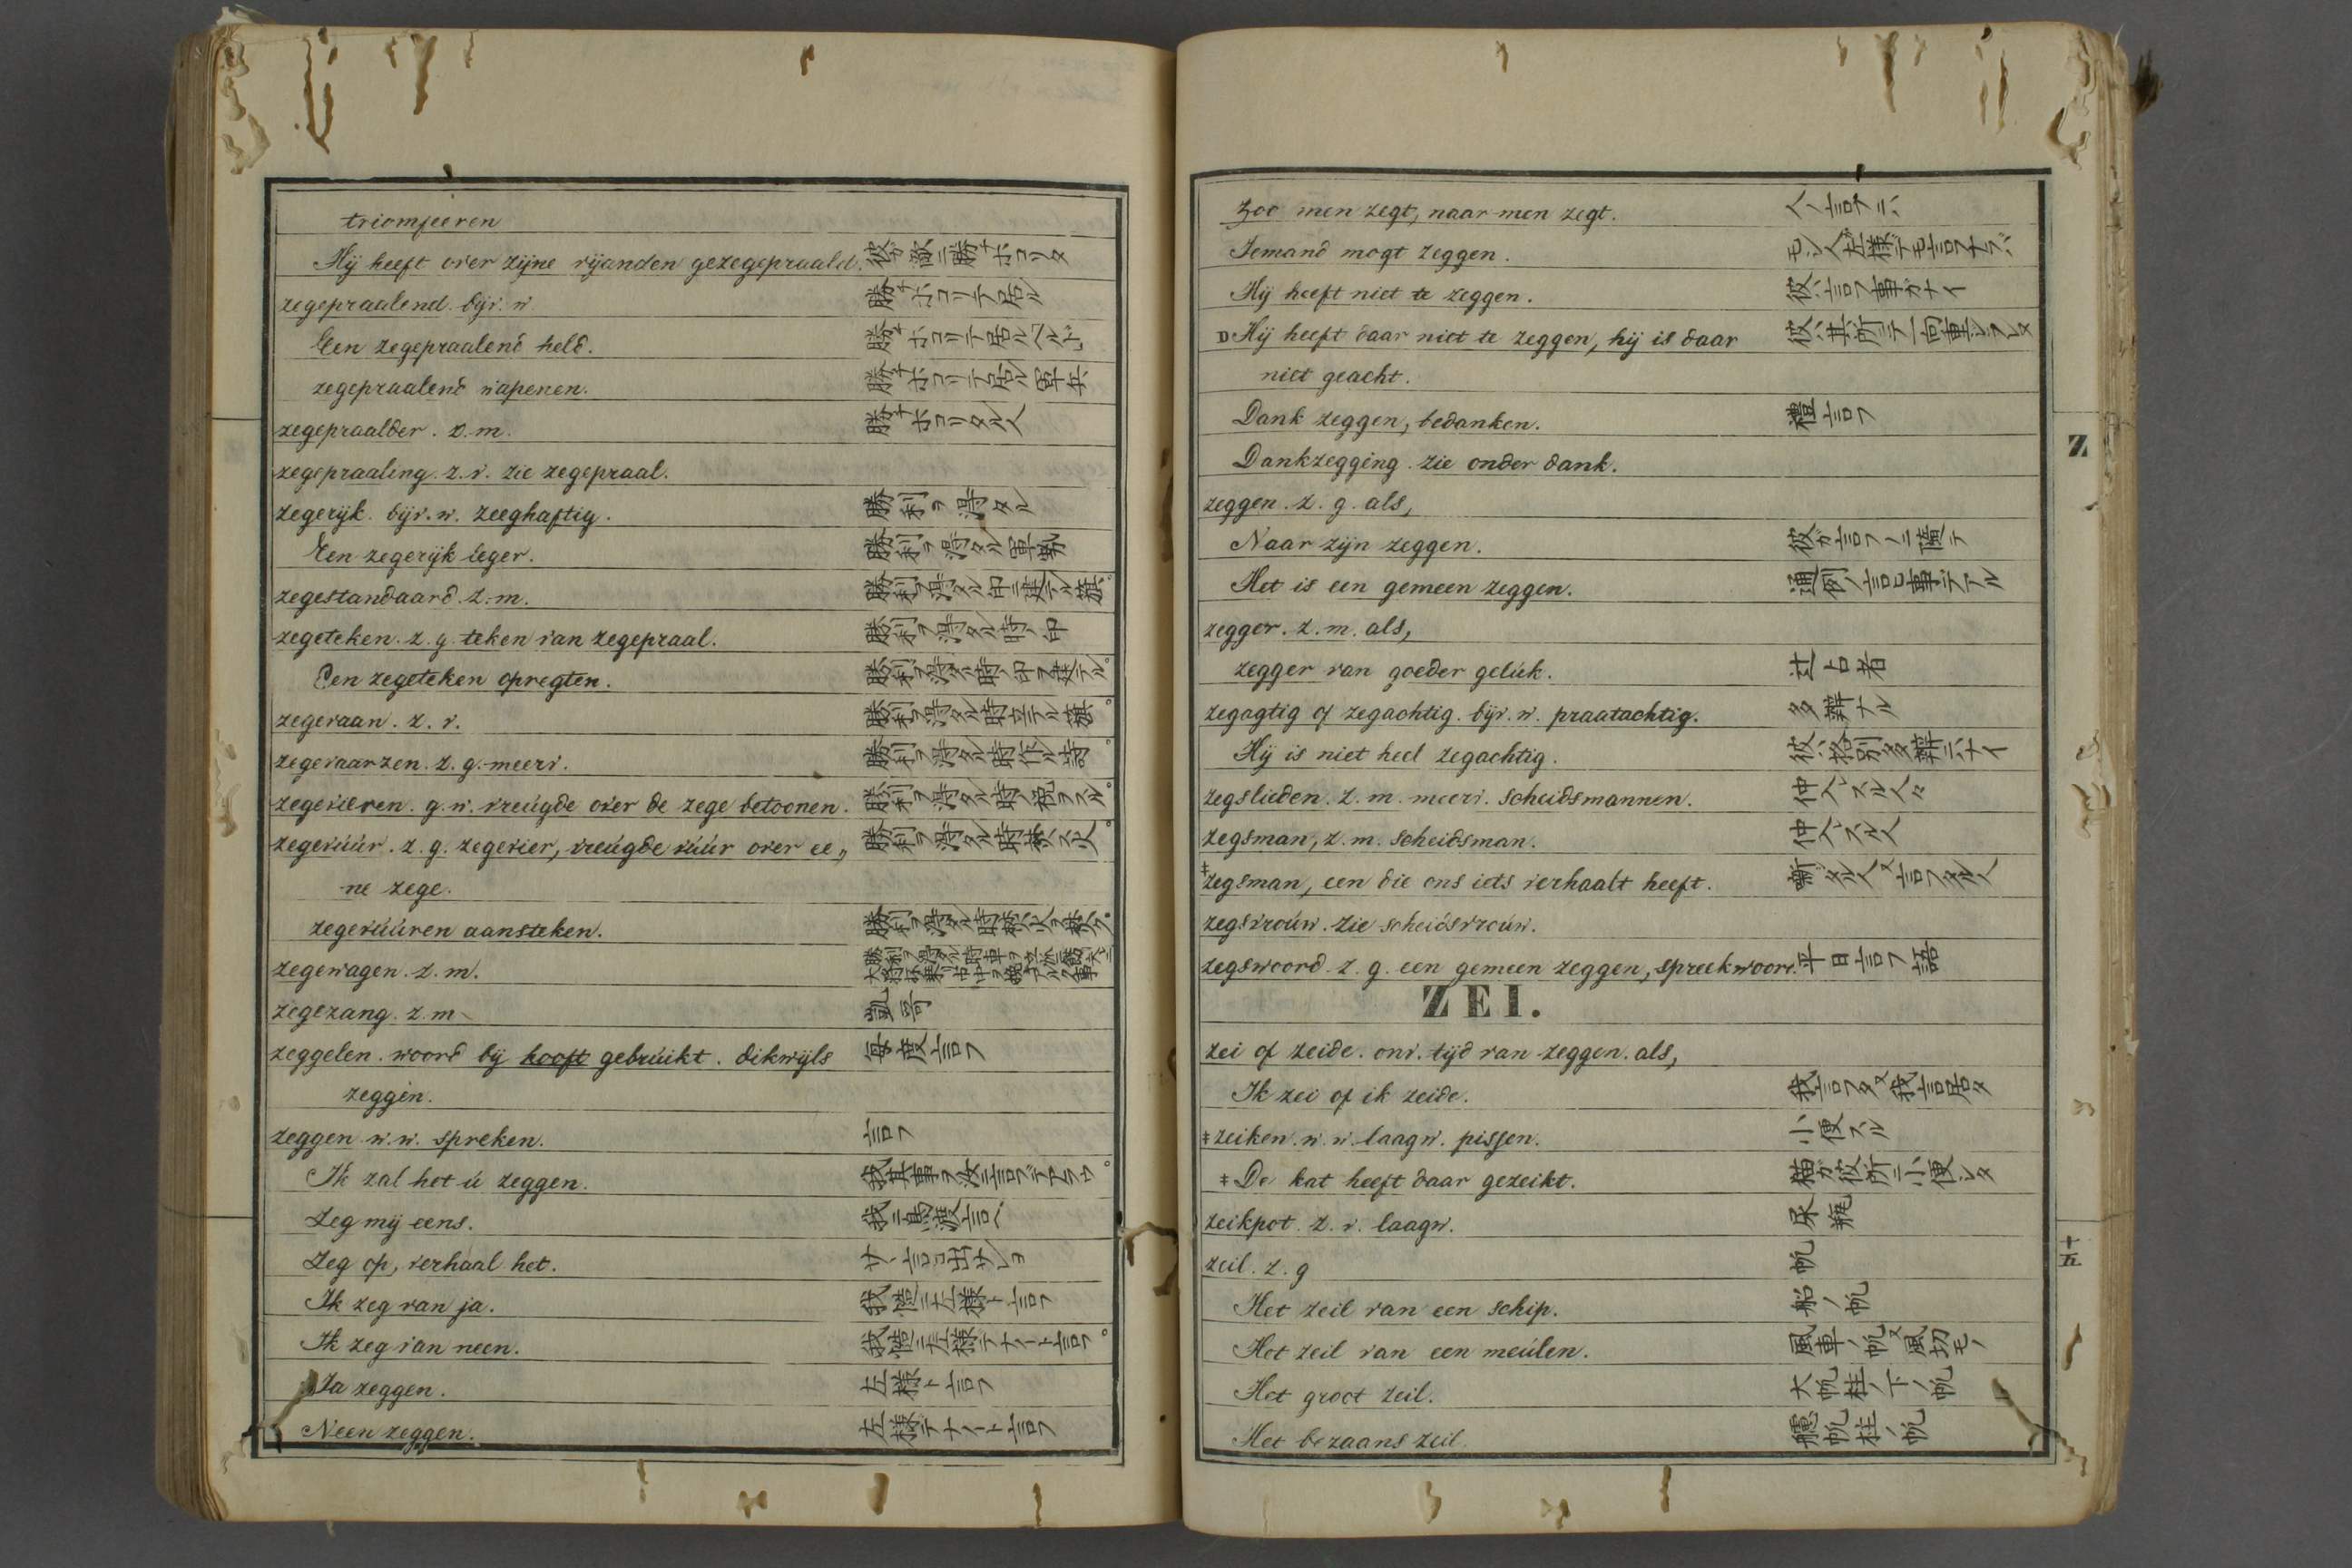 triomfeeren
Hij heeft over zijne vijanden gezegepraald. 彼ガ敵ニ勝チホコリタ
zegepraalend. bijv. w. 勝チホコリテ居ル
Een zegepraalend held. 勝チホコリテ居ル
zegepraalend wapenen. 勝チホコリテ居ル軍兵
zegepraalder. z. m. 勝チホコリタル人
zegepraaling. z. v. zie zegepraal.
zegerijk. bijv. w. zeeghaftig. 勝利ヲ得タル
Een zegerijk leger. 勝利ヲ得タル軍勢
zegestandaard. z. m. 勝利ヲ得タル印ニ建テル旗
zegeteken. z. g. teken van zegepraal. 勝利ヲ得タル時ノ印
Een zegeteken opregten. 勝利ヲ得タル時ノ印ヲ建テル
zegevaan. z. v. 勝利ヲ得タル時立テル旗
zegevaarzen. z. g. meerv. 勝利ヲ得タル時作ル詩
zegevieren. g. w. vreúgde over de zege betoonen. 勝利ヲ得タル時ノ祝ヲスル
zegevúúr. z. g. zegevier, vreúgde vúúr over ee„ 勝利ヲ得タル時
ne zege.
zegevúúren aansteken. 勝利ヲ得タル時
zegewagen. z. m. 勝利ヲ得タル時
zegezang. z. m 凱哥
zeggelen. woord bij hooft gebrúikt. dikwijls 毎度言フ
zeggen.
zeggen w. w. spreken. 言フ
Ik zal het ú zeggen. 我其事ヲ汝ニ言フデアラウ
Zeg mij eens. 我ニ鳥渡言ヘ
Zeg op, verhaal het. サ丶言ヒ出サシヨ
Ik zeg van ja. 我慥ニ左様ト言フ
Ik zeg van neen. 我慥ニ左様テナイト言フ
Ja zeggen. 左様ト言フ
Neen zeggen. 左様テナイト言フ
Zoo men zegt, naar men zegt. 人ノ言フニハ
Iemand mogt zeggen. モシ人ガ左様デモ言フナラバ
Hij heeft niet te zeggen. 彼ハ言フ事ガナイ
D Hij heeft daar niet te zeggen, hij is daar 彼ハ其所テ一向重シラレヌ
niet geacht.
Dank zeggen, bedanken. 禮言フ
Dankzegging. zie onder dank.
zeggen. z. g. als,
Naar zijn zeggen. 彼ガ言フノニ隨テ
Het is een gemeen zeggen. 通例ノ言ヒ事デアル
zegger. z. m. als,
zegger van goeder gelúk. 辻占者
zegagtig of zegachtig. bijv. w. praatachtig. 多辯ナル
Hij is niet heel zegachtig. 彼ハ格別多辯ニハナイ
zegslieden. z. m. meerv. scheidsmannen. 仲人スル人々
zegsman, z. m. scheidsman. 仲人スル人
‡ zegsman, een die ons iets verhaalt heeft. 噺タル人又言フタル人
zegsvroúw. zie scheidsvroúw.
zegswoord. z. g. een gemeen zeggen, spreekwoord. 平日言フ語
ZEI.
zei of zeide. onv. tijd van zeggen. als,
Ik zei of ik zeide. 我言フタ又我言居タ
‡ zeiken. w. w. laagw. pissen. 小便スル
‡ De kat heeft daar gezeikt. 猫ガ彼所ニ小便シタ
zeikpot. z. v. laagw. 尿瓶
zeil. z. g 帆
Het zeil van een schip. 船ノ帆
Het zeil van een meúlen. 風車ノ帆又風切モノ
Het groot zeil. 大帆柱ノ下ノ帆
Het bezaans zeil 艫帆柱ノ帆
Z